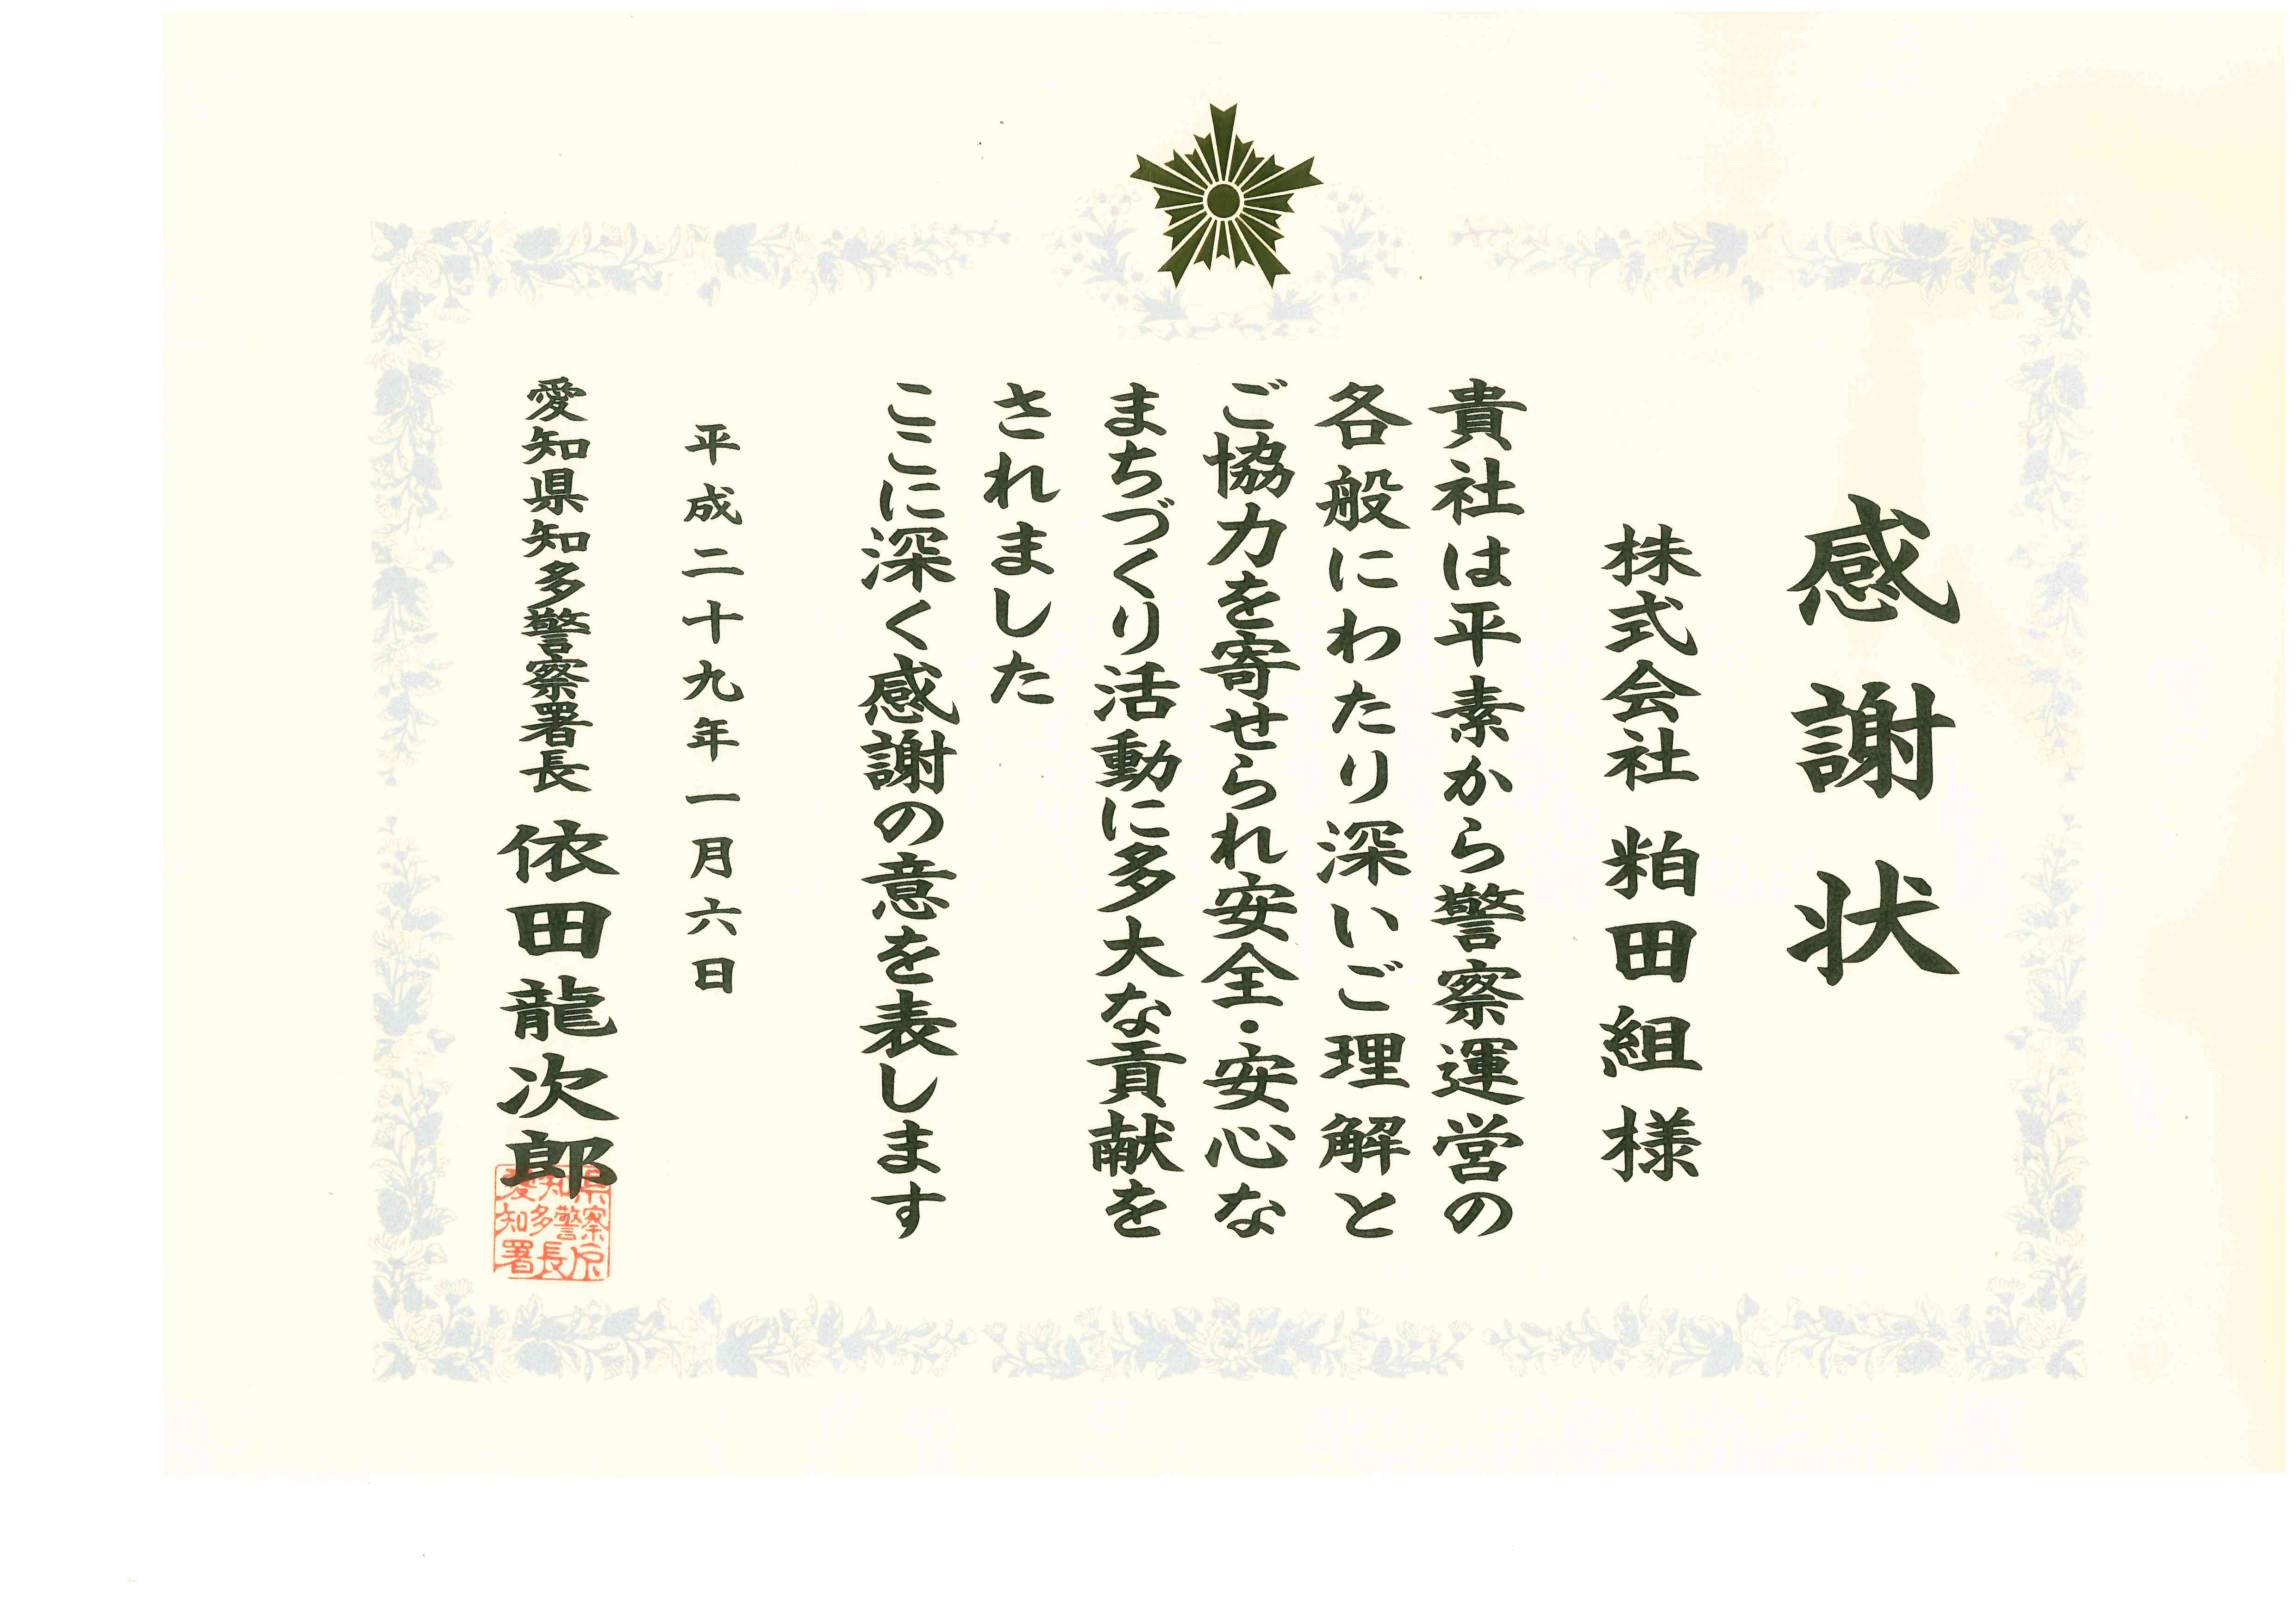 感謝状
株式会社 粕田組 様
貴社は平素から警察運営の
各般にわたり深いご理解と
ご協力を寄せられ安全・安心な
まちづくり活動に多大な貢献を
されました
ここに深く感謝の意を表します
平成二十九年一月六日
愛知県知多警察署長 依田龍次郎
愛知県
知多警察
署長印